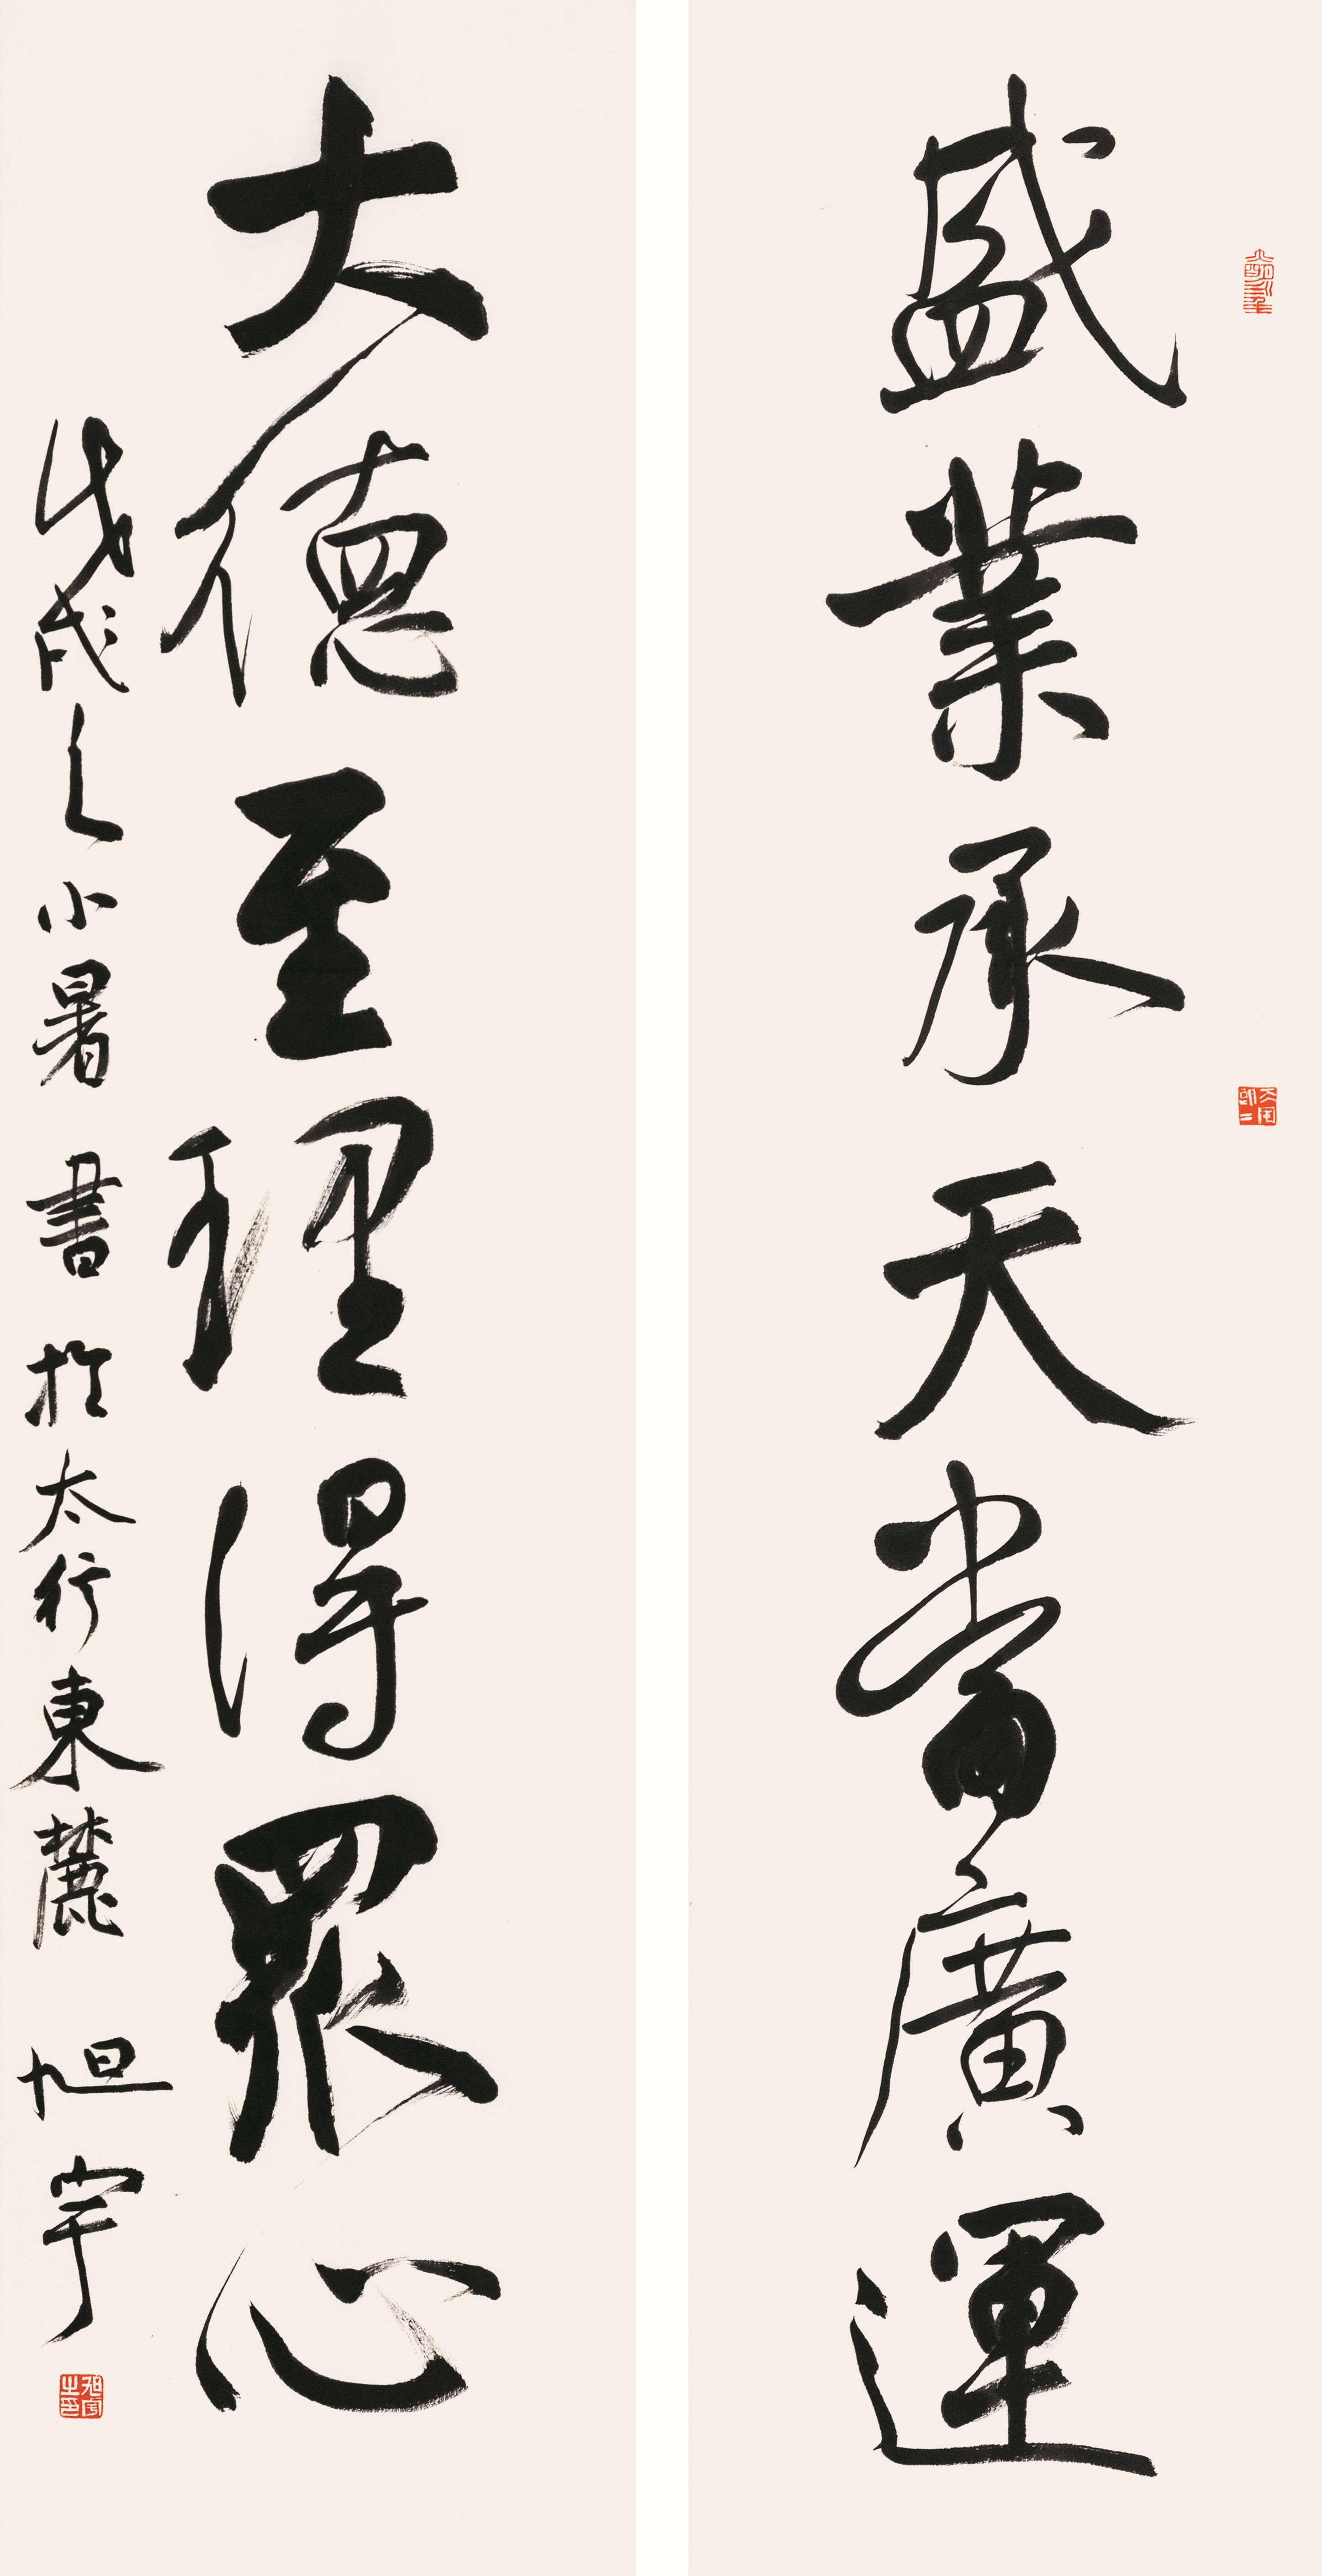 盛業承天當廣運
大德至理得眾心
戊戌之小暑書於太行東麓 旭宇
旭宇之印